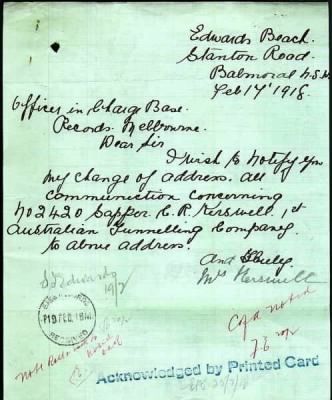 Edwards Beach.
Stanton Road.
Balmoral N.S.W.
Feb 14 1918.
Officer in Charge Base.
Records. Melbourne.
Dear Sir
I wish to notify you
my change of address. all
communication concerning
No 2420 Sapper. C. R. Kerswell. 1st
Australian Tunnelling Company.
to above address.
Mrs Kerswell
19/2
19 FEB 1918
RECEIVED
noted
Acknowledged by Printed Card